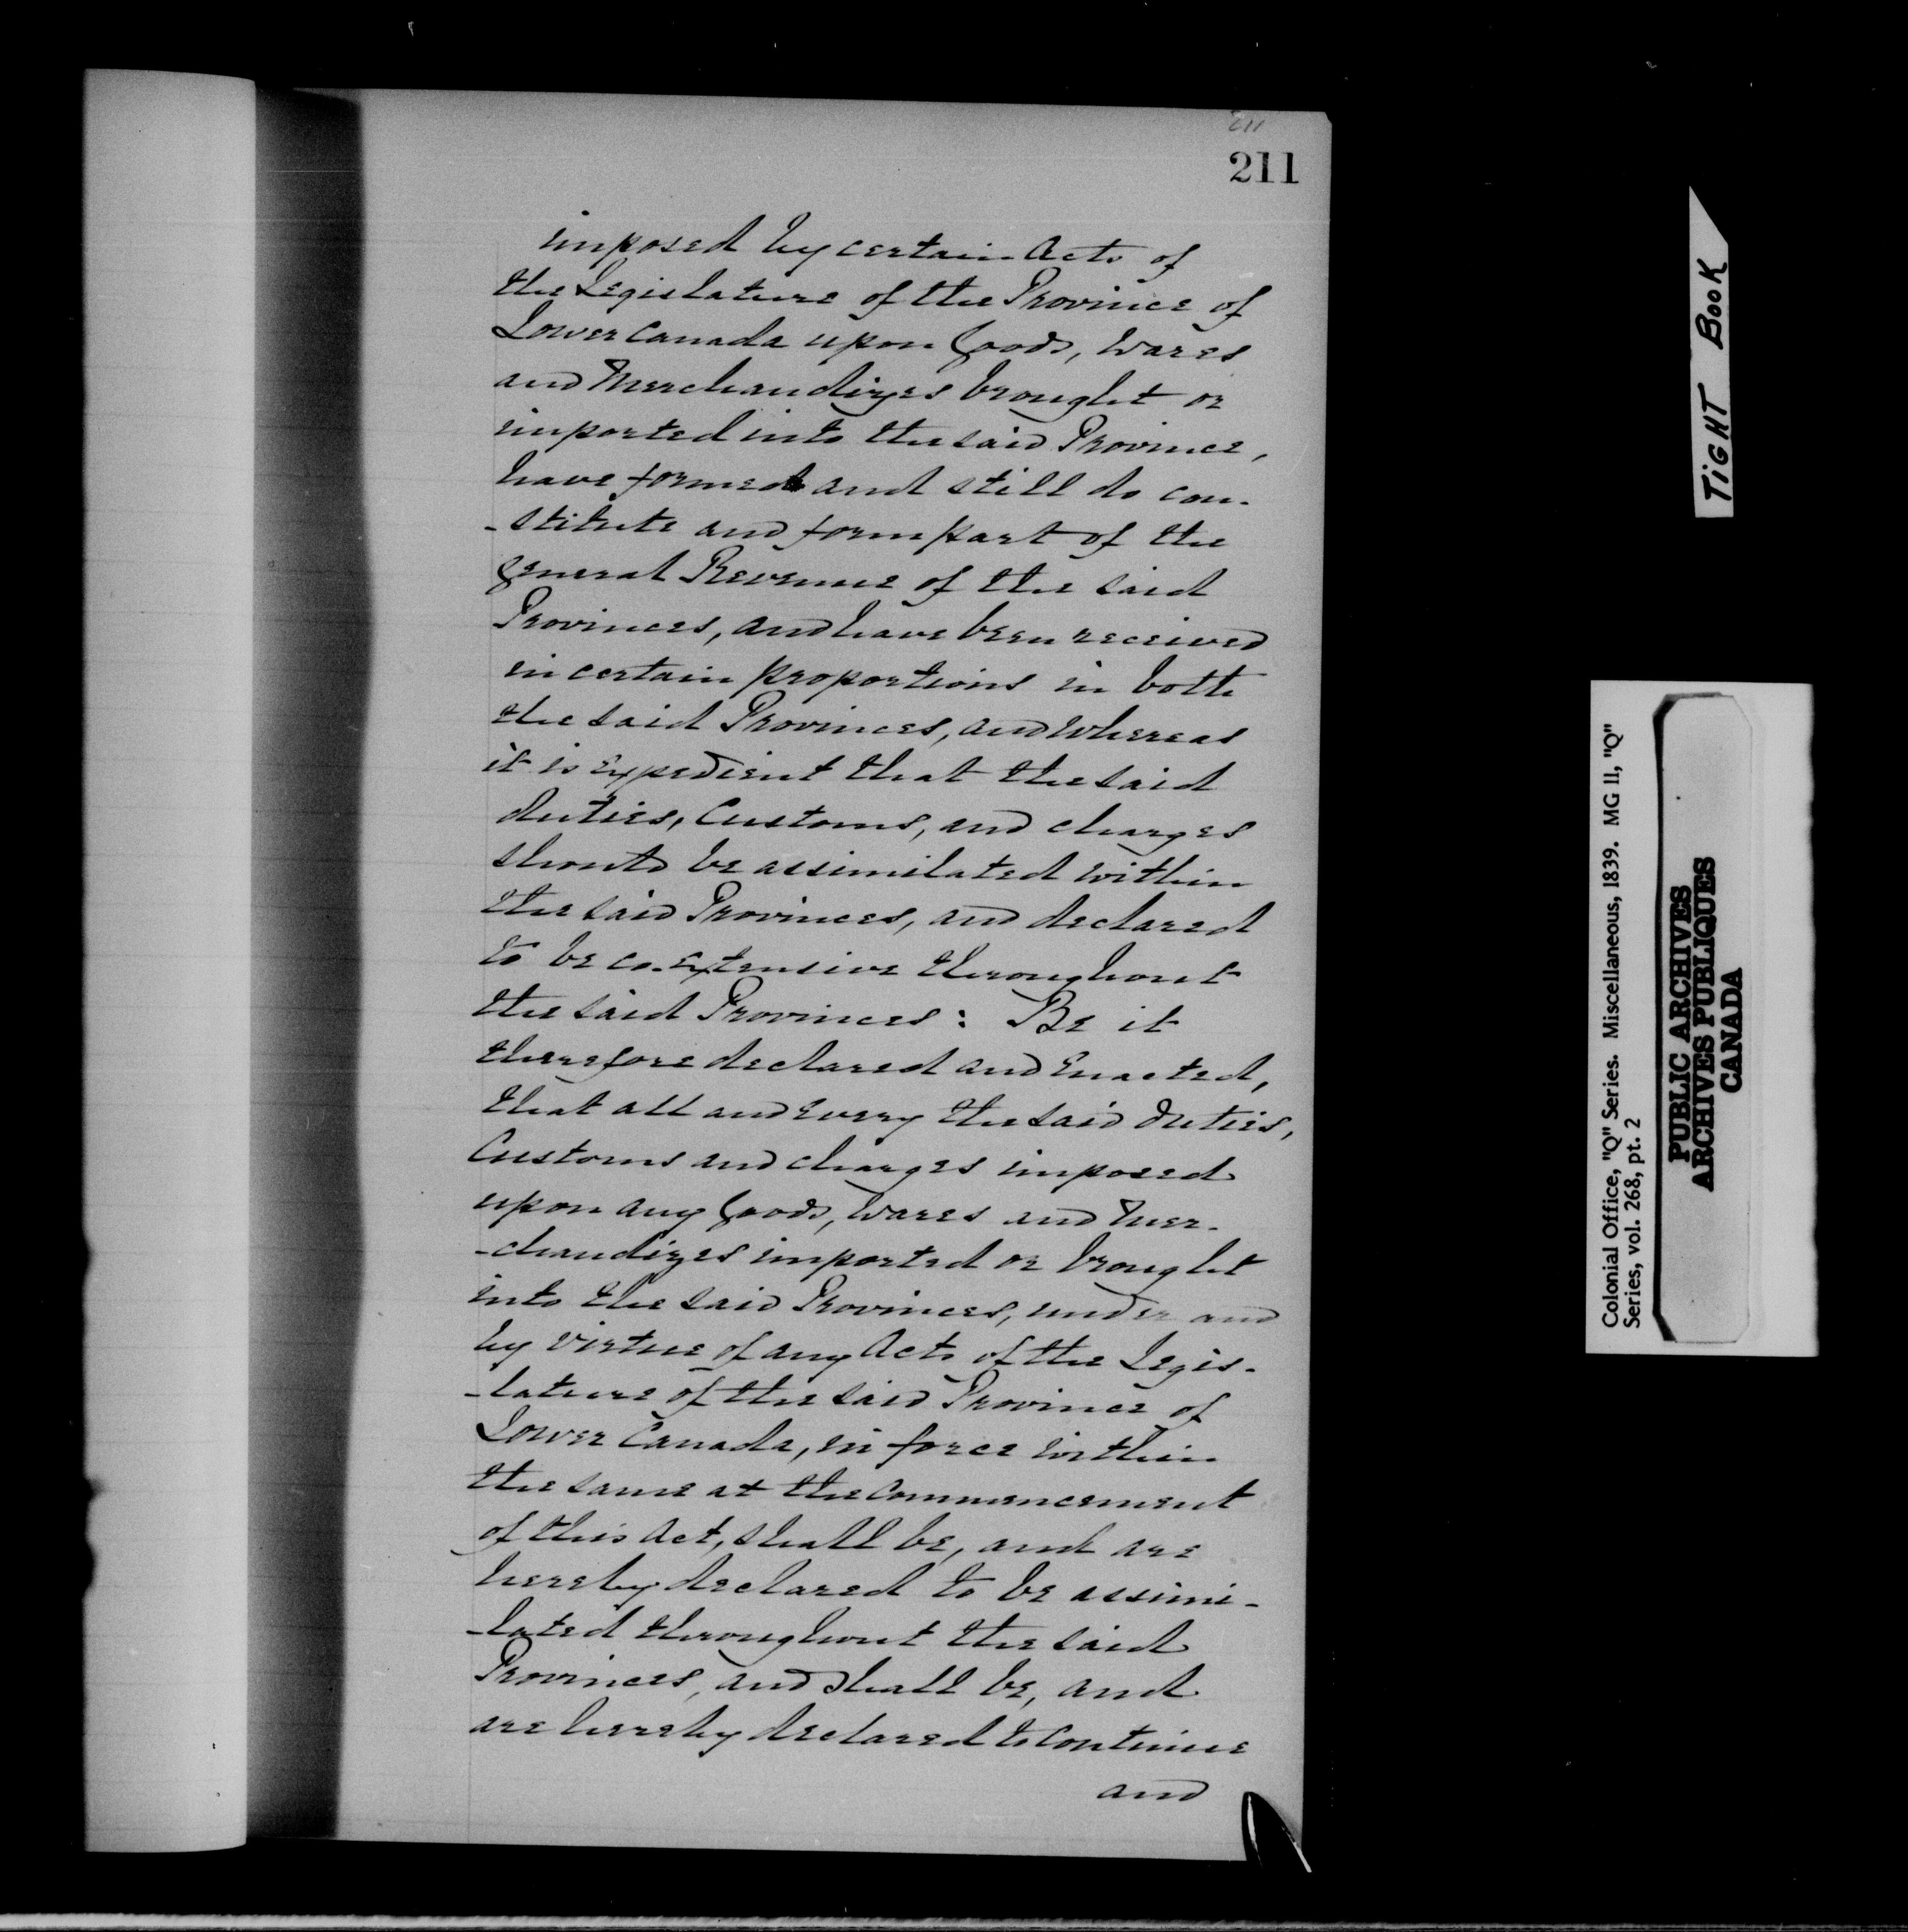 211
211
imposed by certain Acts of
the Legislature of the Province of
Lower Canada upon Goods, Wares
and Merchandizes brought or
imported into the said Province,
have formed and still do con-
-stitute and form part of the
General Revenue of the said
Provinces, and have been received
in certain proportions in both
the said Provinces, and whereas
it is expedient that the said
duties, Customs, and charges
should be assimilated within
the said Provinces, and declared
to be co-extensive throughout
the said Provinces: Be it
therefore declared and Enacted,
that all and every the said duties,
Customs and charges imposed
upon any Goods, Wares and Mer-
-chandizes imported or brought
into the said Provinces, under and
by virtue of any Acts of the Legis-
-lature of the said Province of
Lower Canada, in force within
the same at the Commencement
of this Act, shall be, and are
hereby declared to be assimi-
-lated throughout the said
Provinces, and shall be, and
are hereby declared to Continue
and
TIGHT BOOK
Colonial Office, "Q" Series. Miscellaneous, 1839. MG 11, "Q"
Series, vol. 268, pt. 2
PUBLIC ARCHIVES
ARCHIVES PUBLIQUES
CANADA